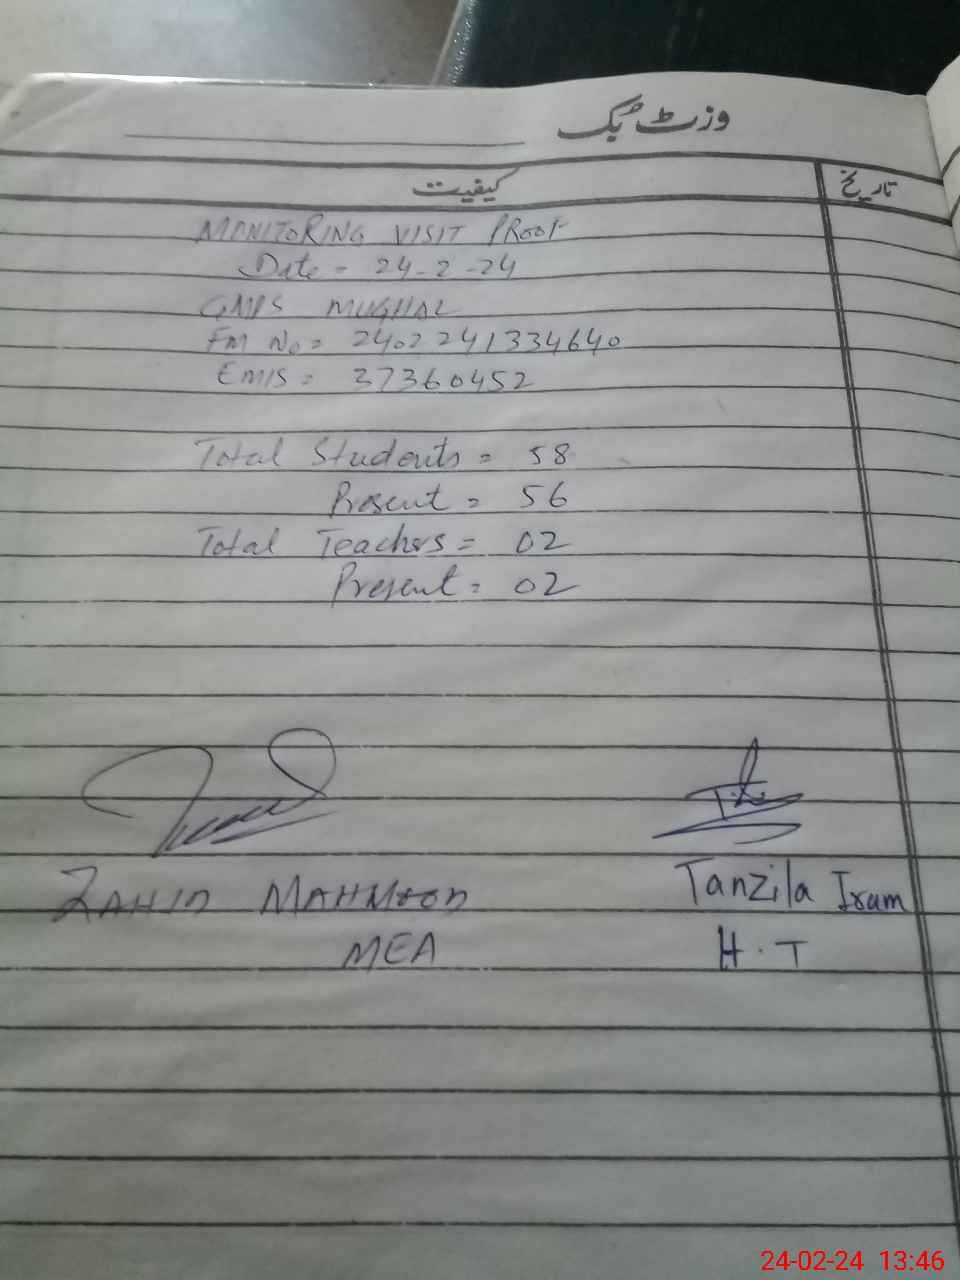 وزٹ بک
کیفیت
تاریخ
MONITORING VISIT PROOF
Date = 24-2-24
GMPS MUGHAL
FM No = 2402241334640
EMIS = 37360452
Total Students = 58
Present = 56
Total Teachers = 02
Present = 02
ZAHID MAHMOOD
Tanzila Iram
MEA
H.T
24-02-24 13:46